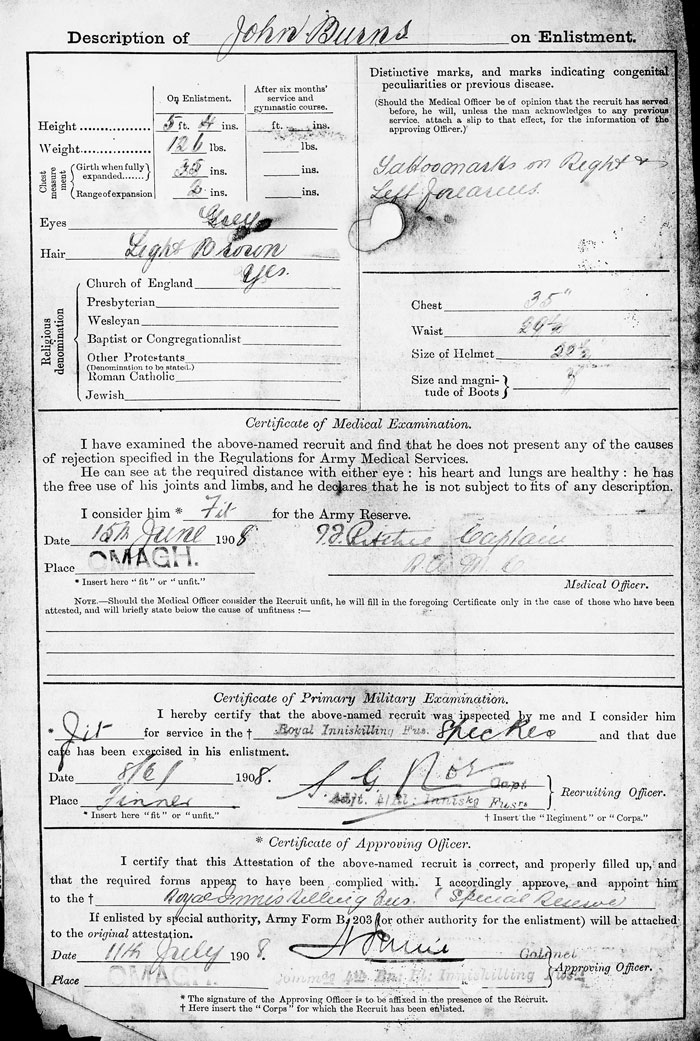 Description of John Burns on Enlistment.
On Enlistment. After six months' service and gymnastic course.
Height 5 ft. 4 ins. ft. ins.
Weight 126 lbs. lbs.
Chest measurement
Girth when fully expanded 35 ins. ins.
Range of expansion 2 ins. ins.
Eyes Grey
Hair Light Brown
Religious denomination
Church of England Yes.
Presbyterian
Wesleyan
Baptist or Congregationalist
Other Protestants
(Denomination to be stated.)
Roman Catholic
Jewish
Distinctive marks, and marks indicating congenital
peculiarities or previous disease.
(Should the Medical Officer be of opinion that the recruit has served
before, he will, unless the man acknowledges to any previous
service, attach a slip to that effect, for the information of the
approving Officer.)
Tattoomarks on Right &
Left forearms
Chest 35"
Waist
Size of Helmet
Size and magnitude of Boots
Certificate of Medical Examination.
I have examined the above-named recruit and find that he does not present any of the causes
of rejection specified in the Regulations for Army Medical Services.
He can see at the required distance with either eye : his heart and lungs are healthy : he has
the free use of his joints and limbs, and he declares that he is not subject to fits of any description.
I consider him * Fit for the Army Reserve.
Date 15th June 1908 Ritchie Captain
Place OMAGH. R.A.M.C
* Insert here "fit" or "unfit." Medical Officer.
NOTE.—Should the Medical Officer consider the Recruit unfit, he will fill in the foregoing Certificate only in the case of those who have been
attested, and will briefly state below the cause of unfitness :—
Certificate of Primary Military Examination.
I hereby certify that the above-named recruit was inspected by me and I consider him
* Fit for service in the † Royal Inniskilling Fus. Spec Res and that due
care has been exercised in his enlistment.
Date 8/6/ 1908. Capt
Place Finner Adjt. 4/Bt: Innisks Fusrs Recruiting Officer.
* Insert here "fit" or "unfit." † Insert the "Regiment" or "Corps."
* Certificate of Approving Officer.
I certify that this Attestation of the above-named recruit is correct, and properly filled up, and
that the required forms appear to have been complied with. I accordingly approve, and appoint him
to the † Royal Inniskilling Fus. Special Reserve
If enlisted by special authority, Army Form B. 203 (or other authority for the enlistment) will be attached
to the original attestation.
Date 11th July 1908. Colonel
Place OMAGH. Commdg 4th Bn. Rl: Inniskilling Fus. Approving Officer.
* The signature of the Approving Officer is to be affixed in the presence of the Recruit.
† Here insert the "Corps" for which the Recruit has been enlisted.